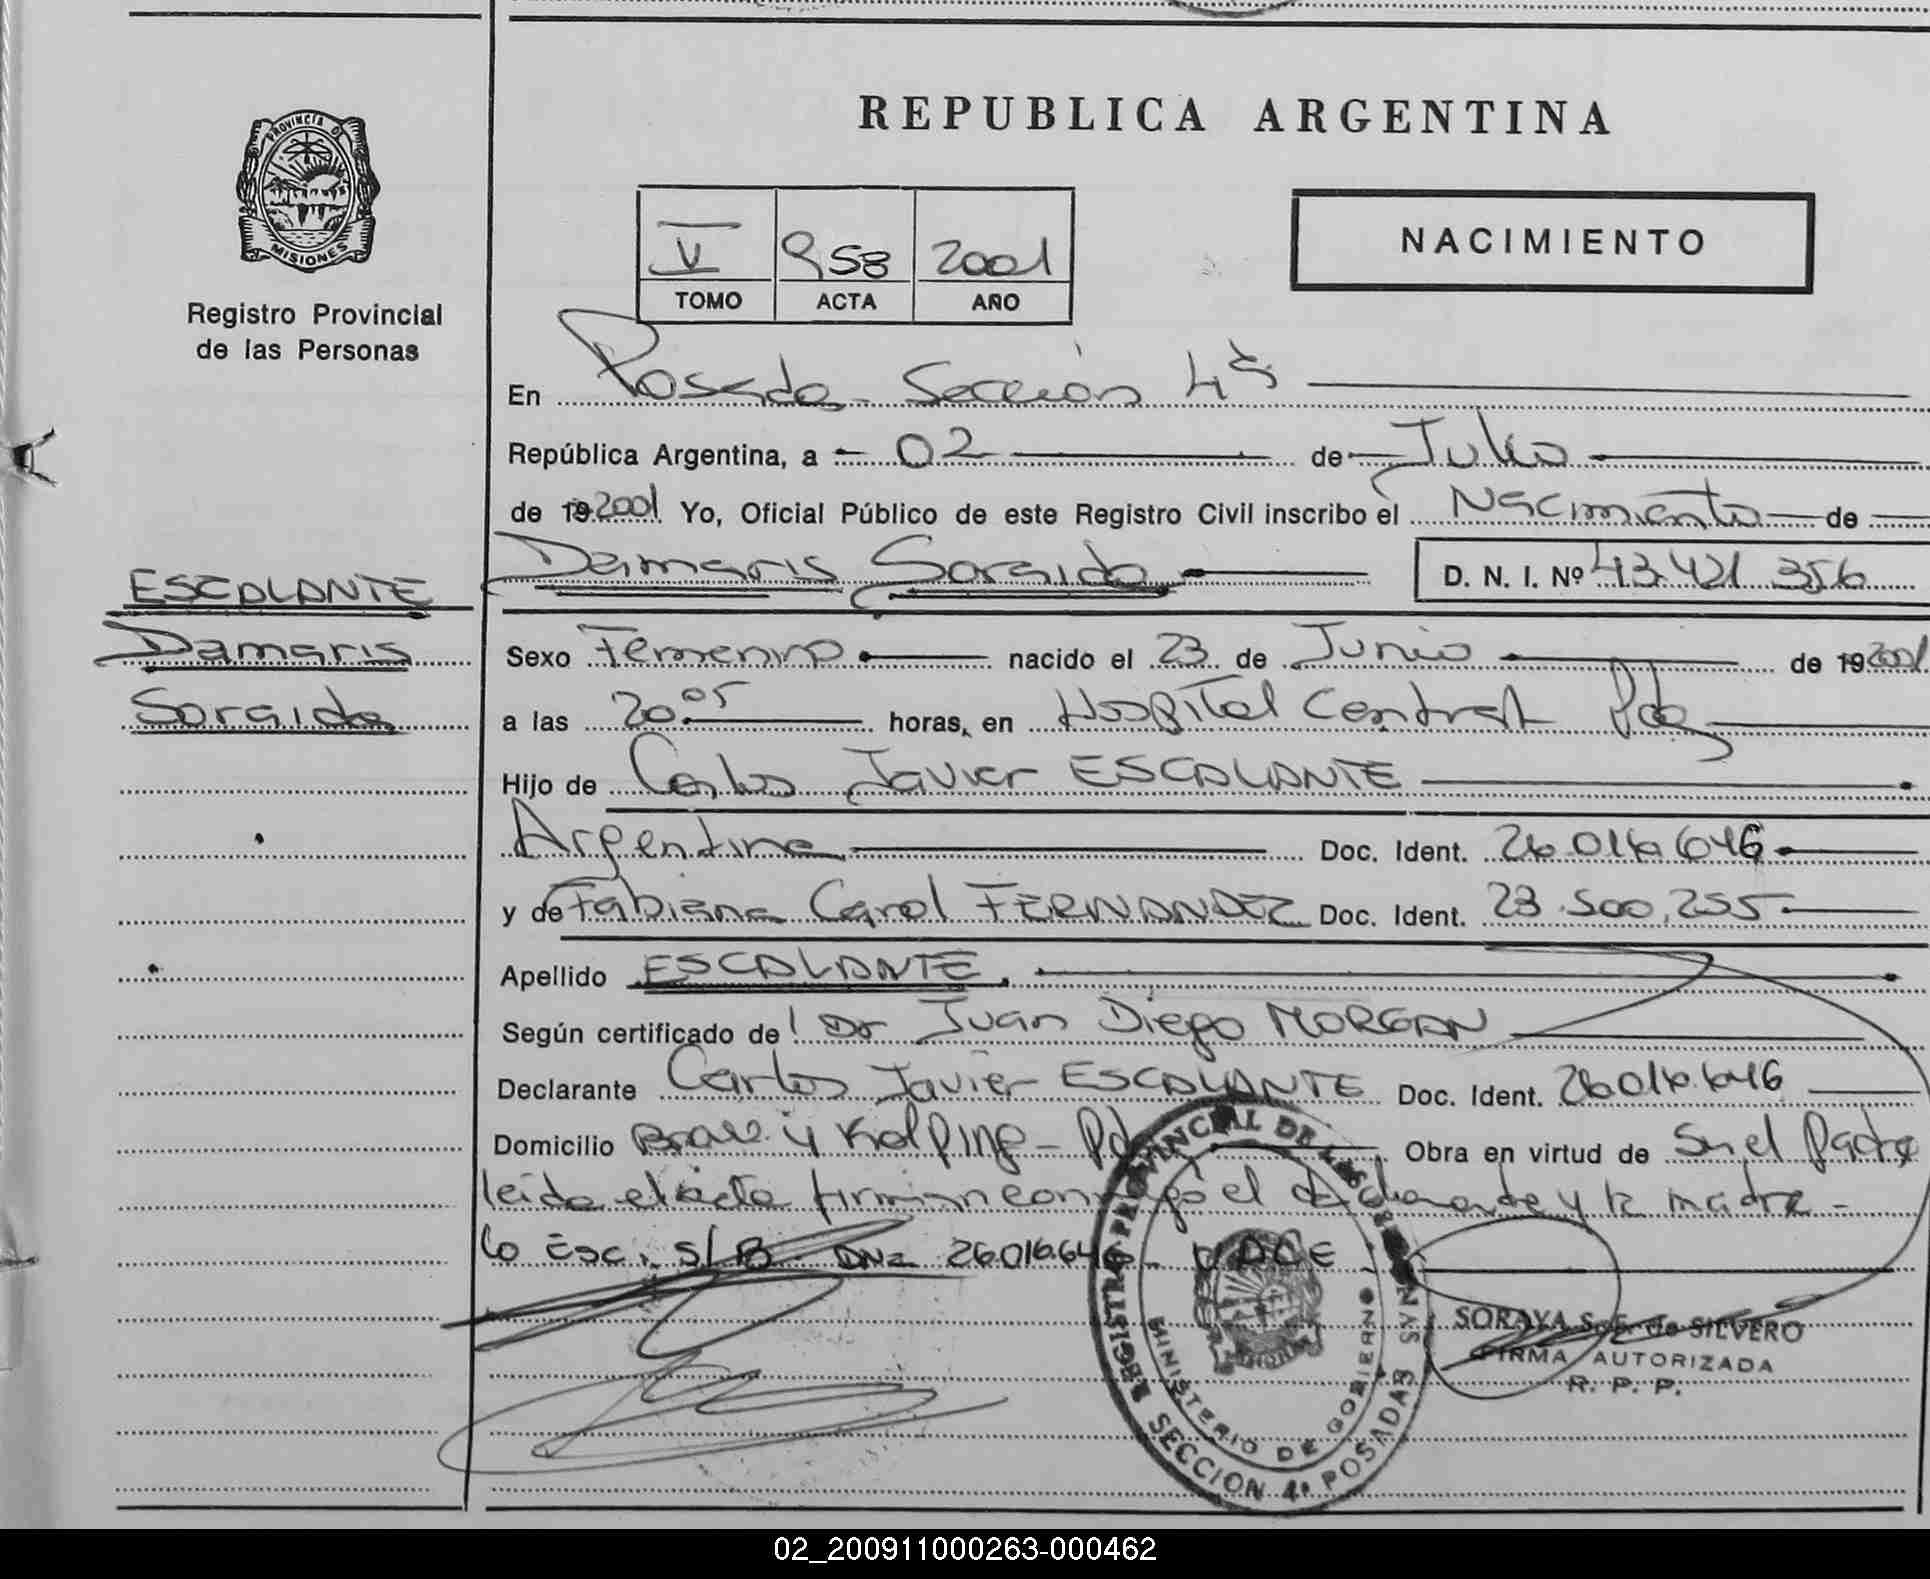 REPUBLICA ARGENTINA
PROVINCIA DE
MISIONES
Registro Provincial
de las Personas
V 958 2001
TOMO ACTA AÑO
NACIMIENTO
En Posadas Sección 4ª
República Argentina, a 02 de Julio
de 19 2001 Yo, Oficial Público de este Registro Civil inscribo el Nacimiento de
Damaris Soraida D. N. I. Nº 43.421.356
ESCALANTE
Damaris
Soraida
Sexo Femenino nacido el 23 de Junio de 19 2001
a las 20 05 horas, en Hospital Central Pdas
Hijo de Carlos Javier ESCALANTE
Argentina Doc. Ident. 26.016.646
y de Fabiana Carol FERNANDEZ Doc. Ident. 23.500.255
Apellido ESCALANTE
Según certificado de Dr Juan Diego MORGAN
Declarante Carlos Javier ESCALANTE Doc. Ident. 26.016.646
Domicilio y Kolping - Obra en virtud de Ser el Padre
leida el acta firman conmigo el declarante y la madre -
Lo Esc. S/B. DNI 26.016.646 - VALE
REGISTRO PROVINCIAL DE LAS PERSONAS
MINISTERIO DE GOBIERNO
SECCION 4ª POSADAS
SORAYA de SILVERO
FIRMA AUTORIZADA
R. P. P.
02_200911000263-000462